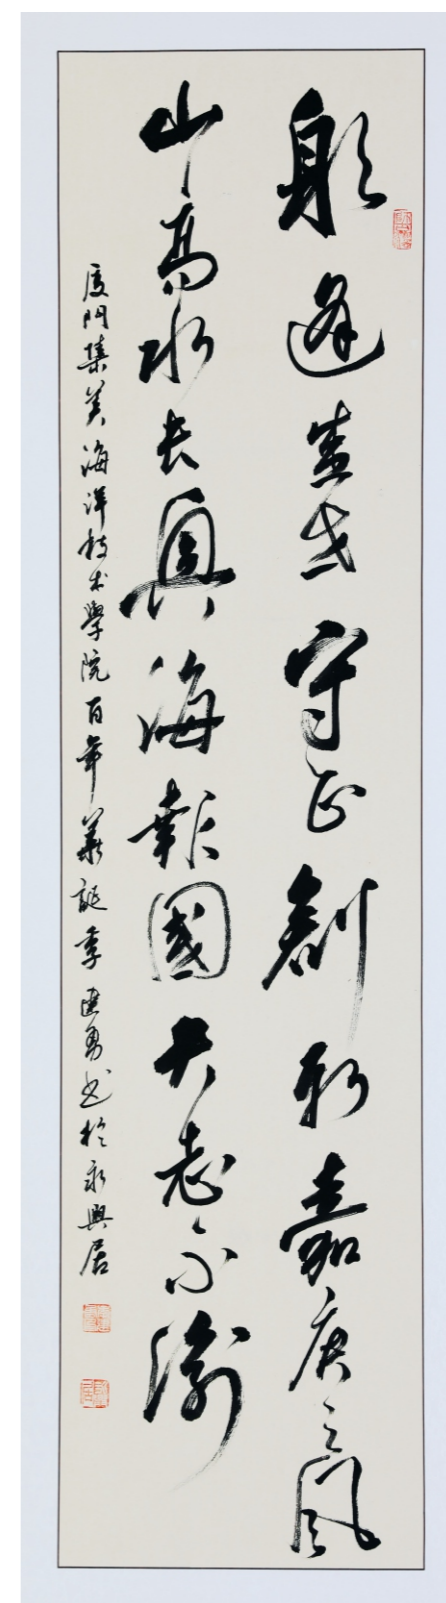 躬逢盛世守正創新嘉庚之風
山高水長興海報國大志不渝
廈門集美海洋技术學院百年華誕季建勇書於永興居